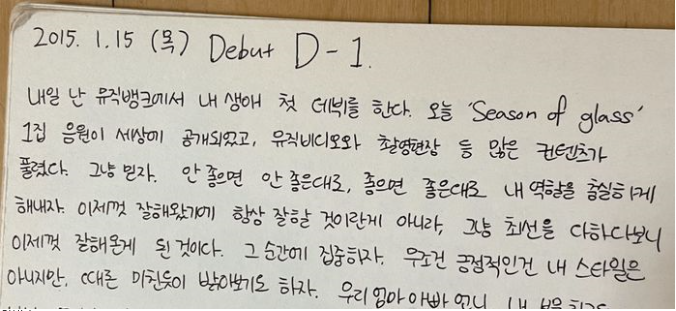 2015. 1.15 (목) Debut D-1.
내일 난 뮤직뱅크에서 내 생애 첫 데뷔를 한다. 오늘 'Season of glass'
1집 음원이 세상에 공개되었고, 뮤직비디오와 촬영현장 등 많은 컨텐츠가
풀렸다. 그냥 믿자. 안 좋으면 안 좋은대로, 좋으면 좋은대로 내 역할을 충실하게
해내자. 이제껏 잘해왔기에 항상 잘할 것이란게 아니라, 그냥 최선을 다하다보니
이제껏 잘해온게 된 것이다. 그 순간에 집중하자. 무조건 긍정적인건 내 스타일은
아니지만, 때론 미친듯이 밝아보기도 하자. 우리 엄마 아빠 언니 내